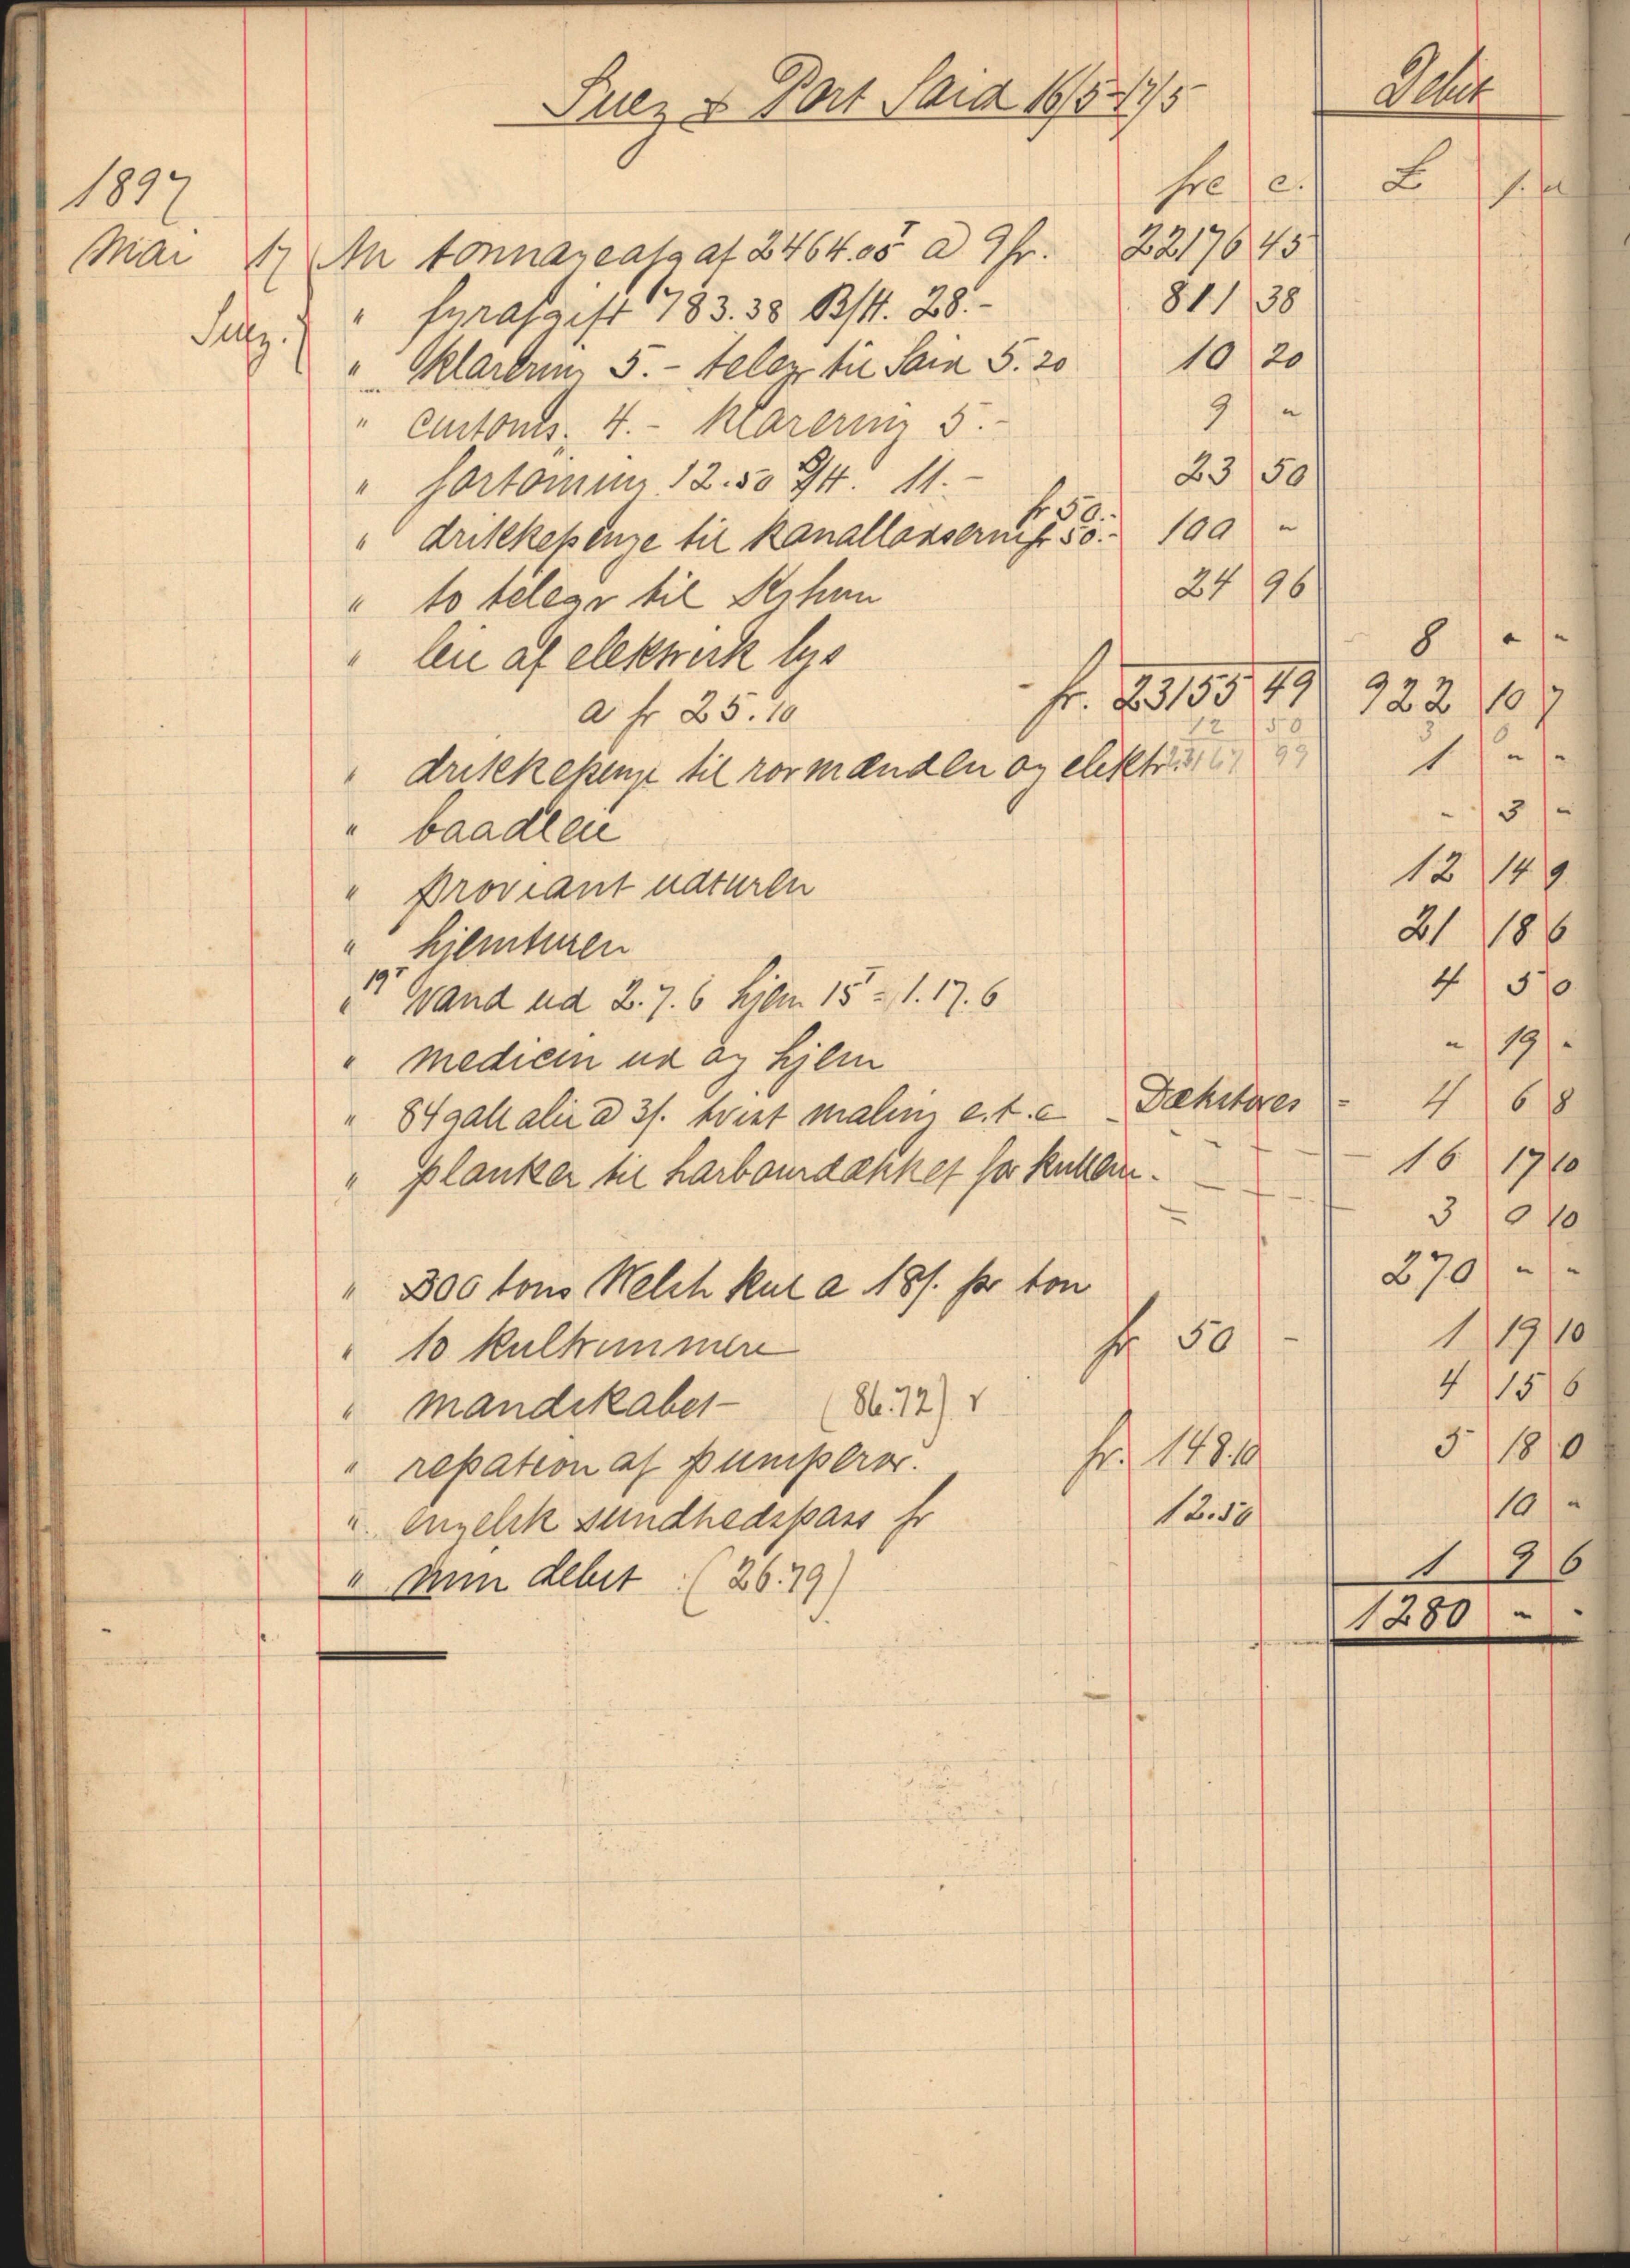 Suez & Port Said 16/5-17/5 Debit
1897 frc c. £ s. d
Mai 17 An tonnageafg af 2464.05 a 9 fr. 22176 45
Suez. " fyrafgift 783.38 B/H. 28.- 811 38
" Klarering 5.- telegr til Said 5.20 10 20
" customs. 4.- klarering 5.- 9 "
" fortöining 12.50 B/H. 11.- 23 50
" drikkepenge til kanallodserne fr 50.- fr 50.- 100 "
" to telegr til 24 96
" leie af elektrisk lys 8 " "
a fr 25.10 fr. 23155 49 922 10 7
12 50
" drikkepenge til rormanden og elektr. 23167 99 1 " "
" baadleie - 3 "
" Proviant udturen 12 14 9
" hjemturen 21 18 6
" 19T Vand ud 2.7.6 hjem 15T = 1.17.6 4 5 0
" medicin ud og hjem " 19 "
" 84 gall olie a 3/. tvist maling e.t.c Dækstores = 4 6 8
" planker til harbourdækket for kullene. 16 17 10
3 0 10
" 300 tons Welsh kul a 18/. pr ton 270 " "
" 10 kultrimmere fr 50 - 1 19 10
" mandskabet - (86.72) v 4 15 6
" repation af pumperør. fr. 148.10 5 18 0
" engelsk sundhedspass fr 12.50 10 "
" min debet (26.79) 1 9 6
1280 " "